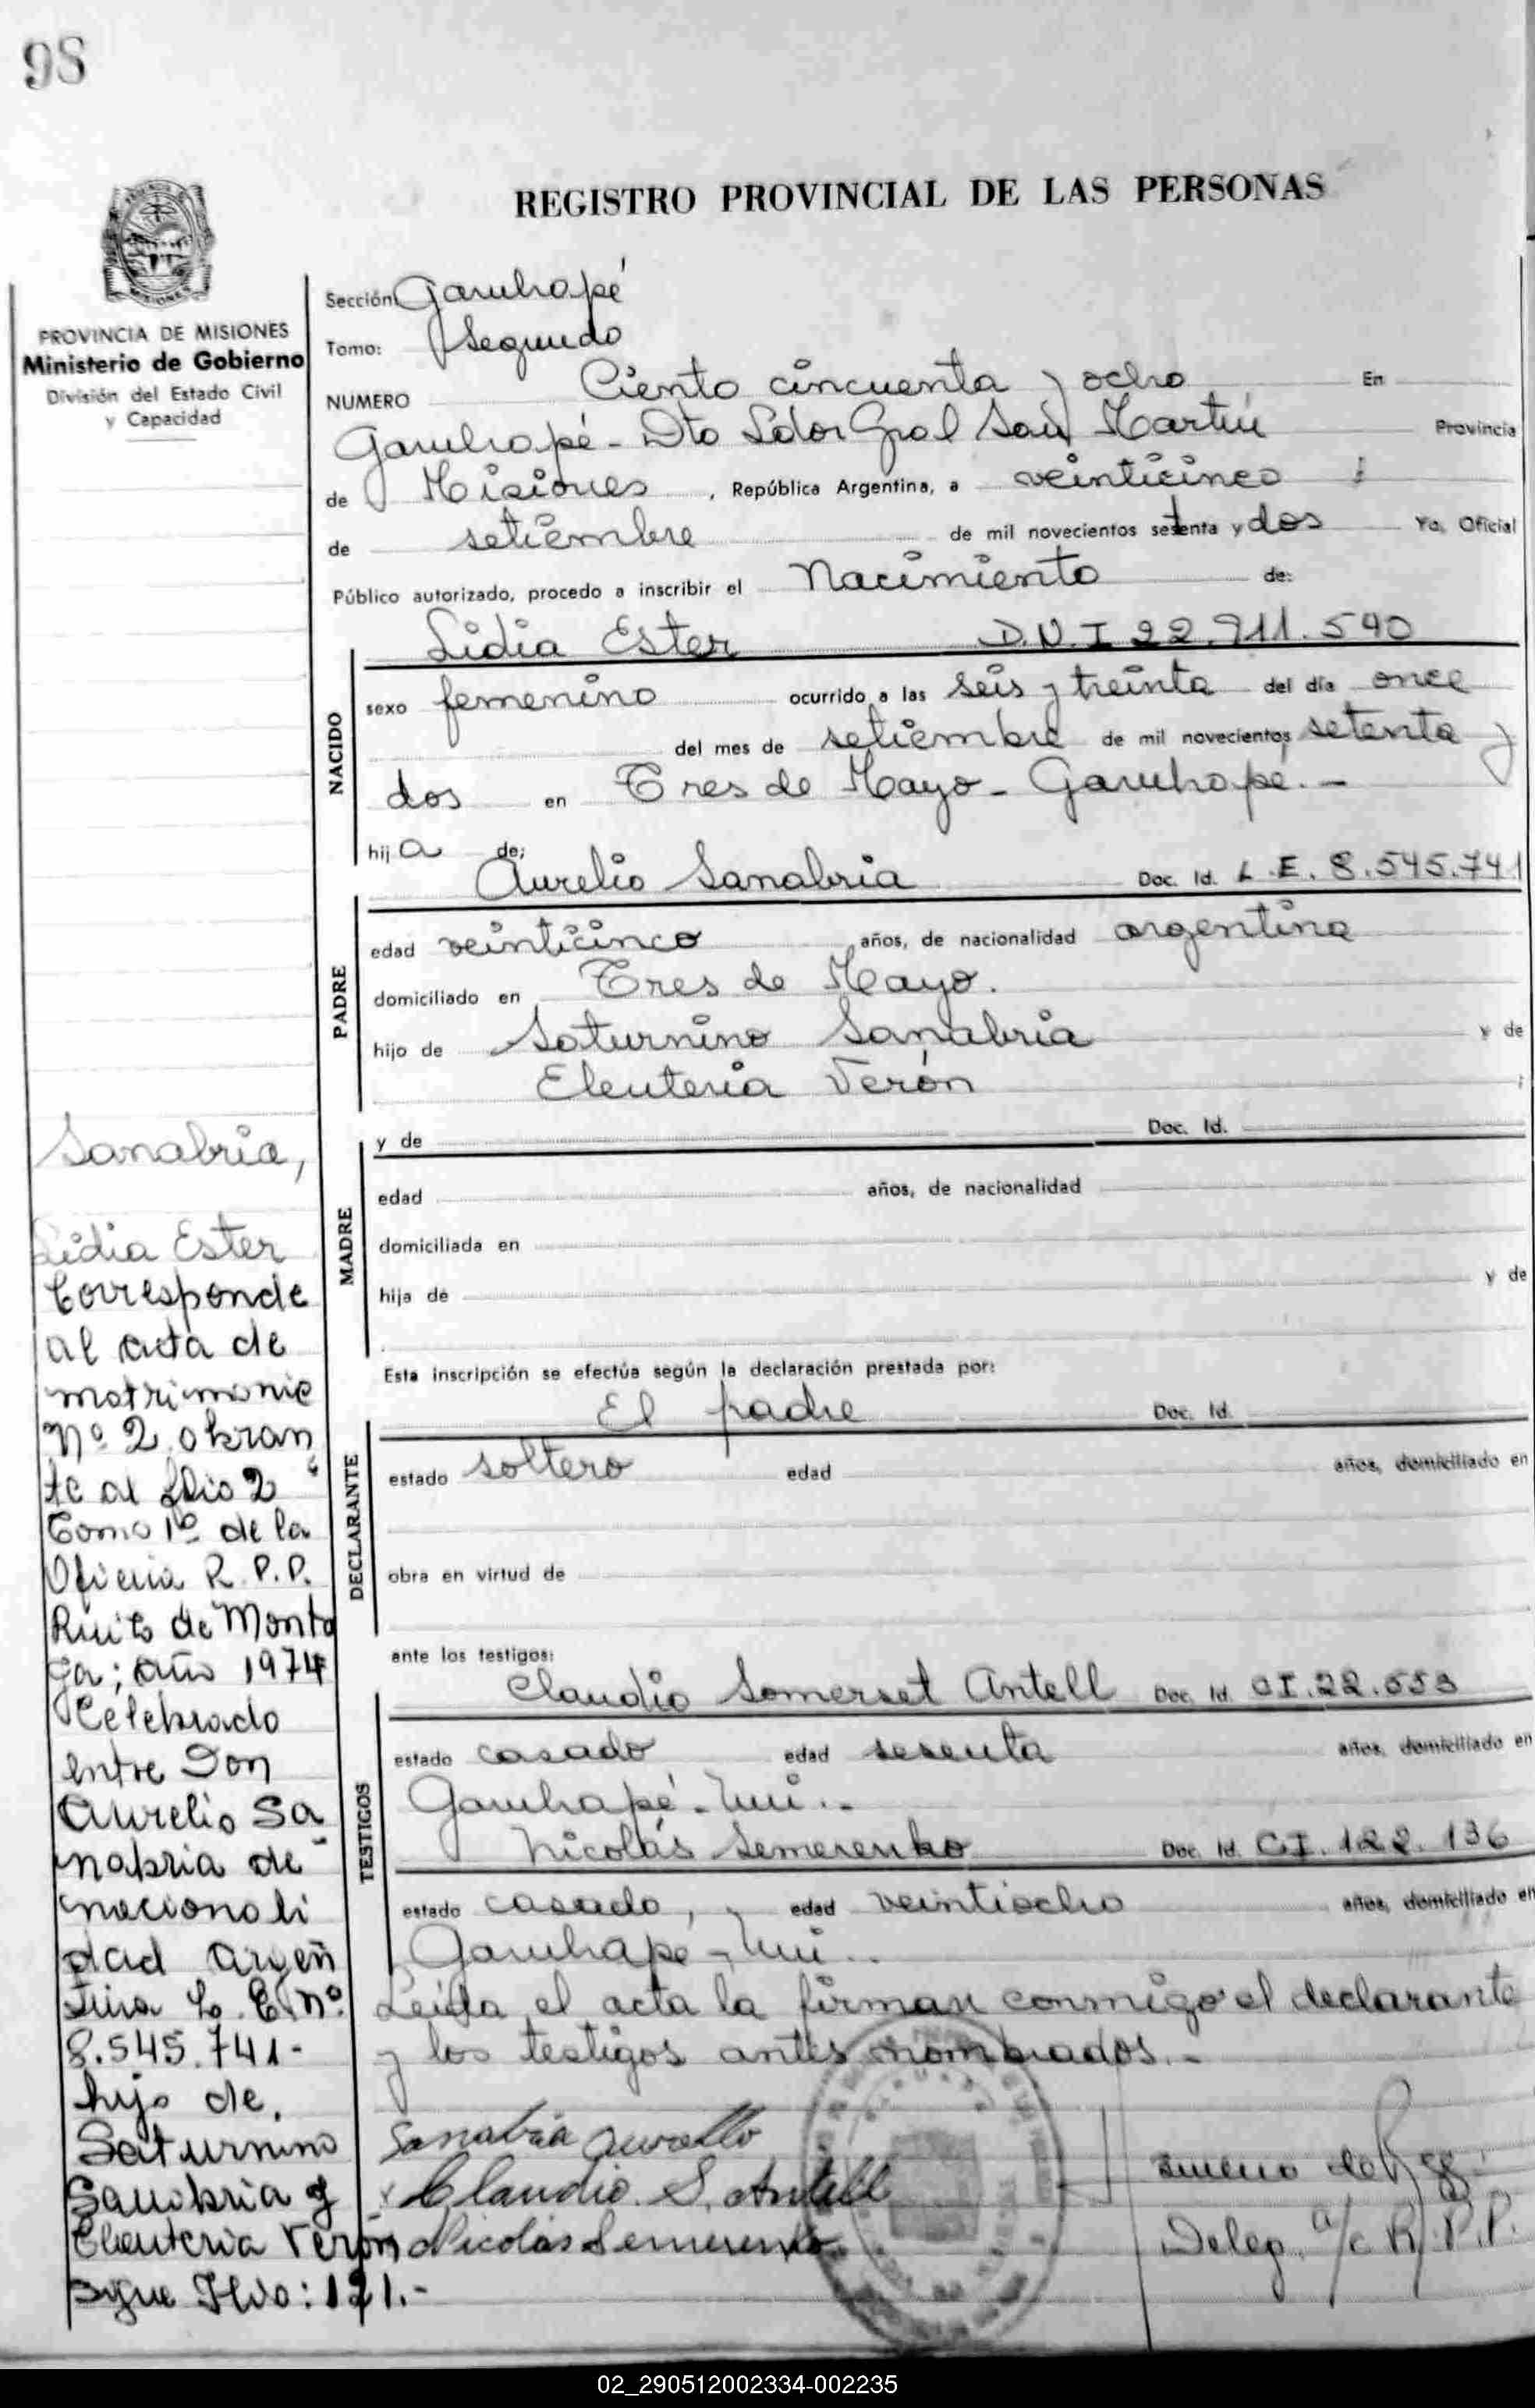 98
REGISTRO PROVINCIAL DE LAS PERSONAS
PROVINCIA DE MISIONES
Ministerio de Gobierno
División del Estado Civil
y Capacidad
Sección: Garuhapé
Tomo: Segundo
NUMERO Ciento cincuenta y ocho En
Garuhapé - Dto Ldor Gral San Martín Provincia
de Misiones, República Argentina, a veinticinco
de setiembre de mil novecientos setenta y dos Yo, Oficial
Público autorizado, procedo a inscribir el Nacimiento de:
Lidia Ester D.N.I 22.911.540
NACIDO
sexo femenino ocurrido a las seis y treinta del día once
del mes de setiembre de mil novecientos setenta y
dos en Tres de Mayo - Garuhapé. -
hija de:
Aurelio Sanabria Doc. Id. L.E. 8.545.741
PADRE
edad veinticinco años, de nacionalidad argentina
domiciliado en Tres de Mayo.
hijo de Saturnino Sanabria y de
Eleuteria Verón ;
MADRE
y de Doc. Id.
edad años, de nacionalidad
domiciliada en
hija de y de
Esta inscripción se efectúa según la declaración prestada por:
El padre Doc. Id.
DECLARANTE
estado soltero edad años, domiciliado en
obra en virtud de
ante los testigos:
Claudio Somerset Antell Doc. Id. CI.22.553
TESTIGOS
estado casado edad sesenta años, domiciliado en
Garuhapé-Mini.-
Nicolás Semerenko Doc. Id. CI. 122.136
estado casado, edad veintiocho años, domiciliado en
Garuhapé-Mini..
Leída el acta la firman conmigo el declarante
y los testigos antes nombrados.-
Sanabria Aurelio
Claudio. S. Antell
Nicolás Semerenko
Deleg. a/c R.P.P.
Sanabria,
Lidia Ester
Corresponde
al acta de
matrimonio
Nº 2 obran
te al folio 2
Tomo 1º de la
Oficina R.P.P.
Ruiz de Monto
ya; año 1974
Celebrado
entre Don
Aurelio Sa
nabria de
nacionali
dad argen
tina L.E. Nº
8.545.741-
hijo de,
Saturnino
Sanabria y
Eleuteria Verón
Sigue Flio: 121.-
02_290512002334-002235